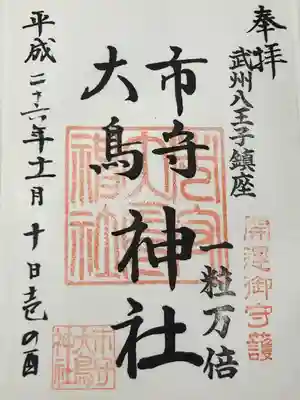 奉拝
武州八王子鎮座
開運御守護
市守
大鳥
神社
一粒万倍
平成二十六年十一月十日壱の酉
市守
大鳥
神社